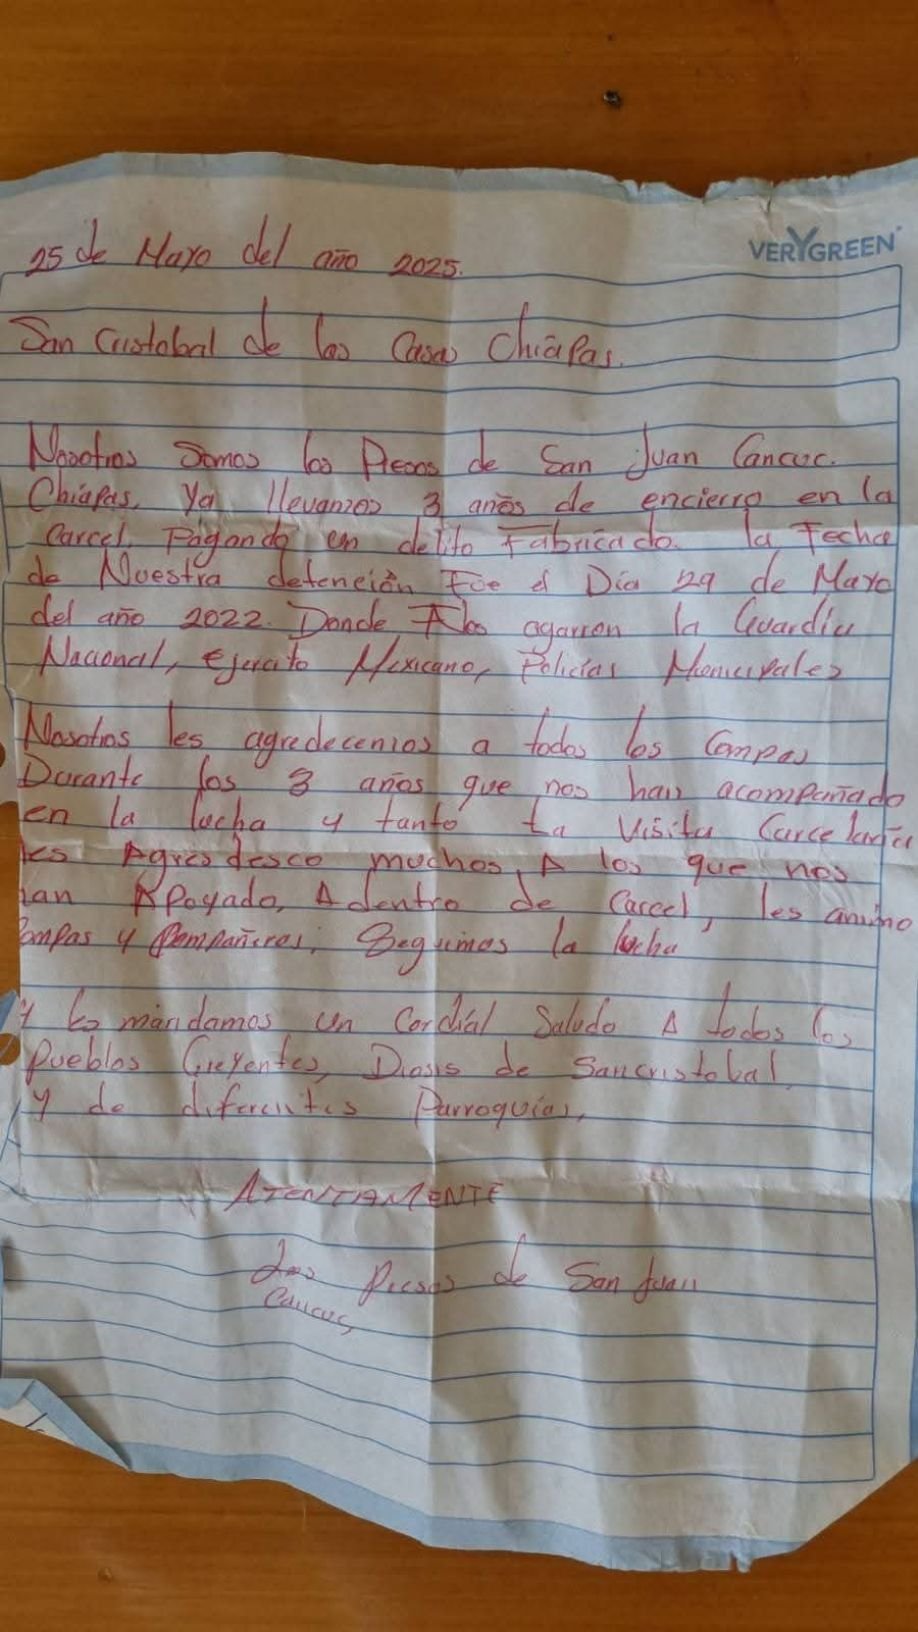 VERYGREEN
25 de Mayo del año 2025.
San Cristobal de las Casas Chiapas.
Nosotros Somos los Presos de San Juan Cancuc.
Chiapas, Ya llevamos 3 años de encierro en la
Carcel, Pagando un delito Fabricado. la Fecha
de Nuestra detención Fue el Día 29 de Mayo
del año 2022. Donde Nos agarron la Guardia
Nacional, Ejercito Mexicano, Policias Municipales
Nosotros les agredecemos a todos los Compas
Durante los 3 años que nos han acompañado
en la lucha y tanto La Visita Carcelaria
les Agresdesco muchos, A los que nos
han Apoyado, Adentro de Carcel, les animo
Compas y Compañeras, Seguimos la lucha
Y les mandamos un Cordial Saludo A todos los
Pueblos Creyentes, Diosis de Sancristobal,
y de diferentes Parroquias,
ATENTAMENTE
Los Presos de San Juan
Cancuc,